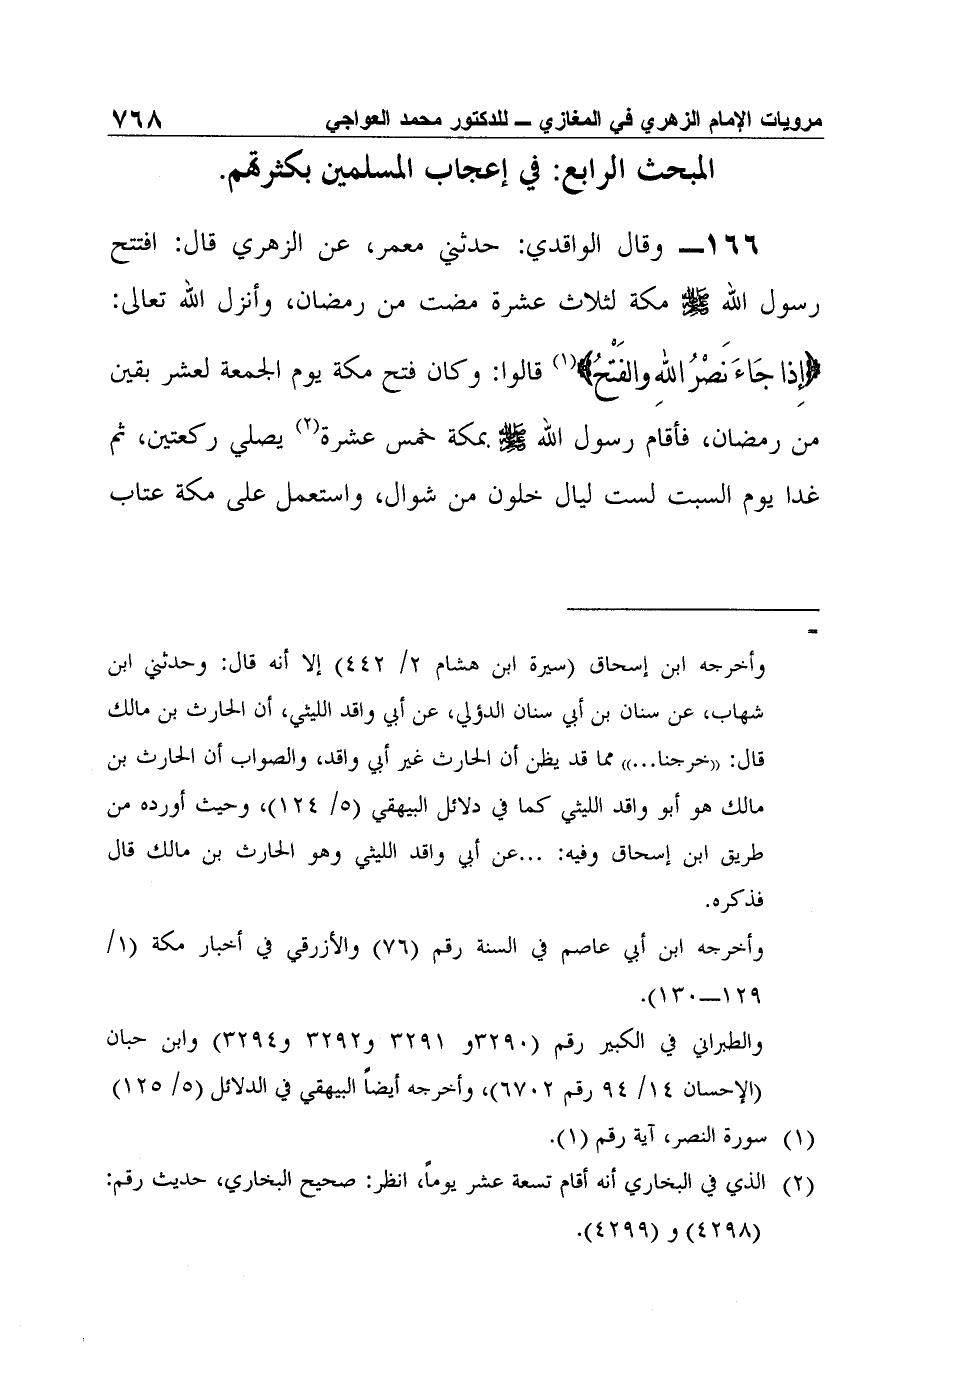 مرويات الإمام الزهري في المغازي ــ للدكتور محمد العواجي ٧٦٨
المبحث الرابع: في إعجاب المسلمين بكثرتهم.
١٦٦ــ وقال الواقدي: حدثني معمر، عن الزهري قال: افتتح
رسول الله ﷺ مكة لثلاث عشرة مضت من رمضان، وأنزل الله تعالى:
﴿إِذَا جَاءَ نَصْرُ اللهِ والفَتْحُ﴾(١) قالوا: وكان فتح مكة يوم الجمعة لعشر بقين
من رمضان، فأقام رسول الله ﷺ بمكة خمس عشرة(٢) يصلي ركعتين، ثم
غدا يوم السبت لست ليال خلون من شوال، واستعمل على مكة عتاب
=
وأخرجه ابن إسحاق (سيرة ابن هشام ٢/ ٤٤٢) إلا أنه قال: وحدثني ابن
شهاب، عن سنان بن أبي سنان الدؤلي، عن أبي واقد الليثي، أن الحارث بن مالك
قال: ((خرجنا...)) مما قد يظن أن الحارث غير أبي واقد، والصواب أن الحارث بن
مالك هو أبو واقد الليثي كما في دلائل البيهقي (٥/ ١٢٤)، وحيث أورده من
طريق ابن إسحاق وفيه: ...عن أبي واقد الليثي وهو الحارث بن مالك قال
فذكره.
وأخرجه ابن أبي عاصم في السنة رقم (٧٦) والأزرقي في أخبار مكة (١/
١٢٩ــ١٣٠).
والطبراني في الكبير رقم (٣٢٩٠و ٣٢٩١ و٣٢٩٢ و٣٢٩٤) وابن حبان
(الإحسان ١٤/ ٩٤ رقم ٦٧٠٢)، وأخرجه أيضاً البيهقي في الدلائل (٥/ ١٢٥)
(١) سورة النصر، آية رقم (١).
(٢) الذي في البخاري أنه أقام تسعة عشر يوماً، انظر: صحيح البخاري، حديث رقم:
(٤٢٩٨) و (٤٢٩٩).